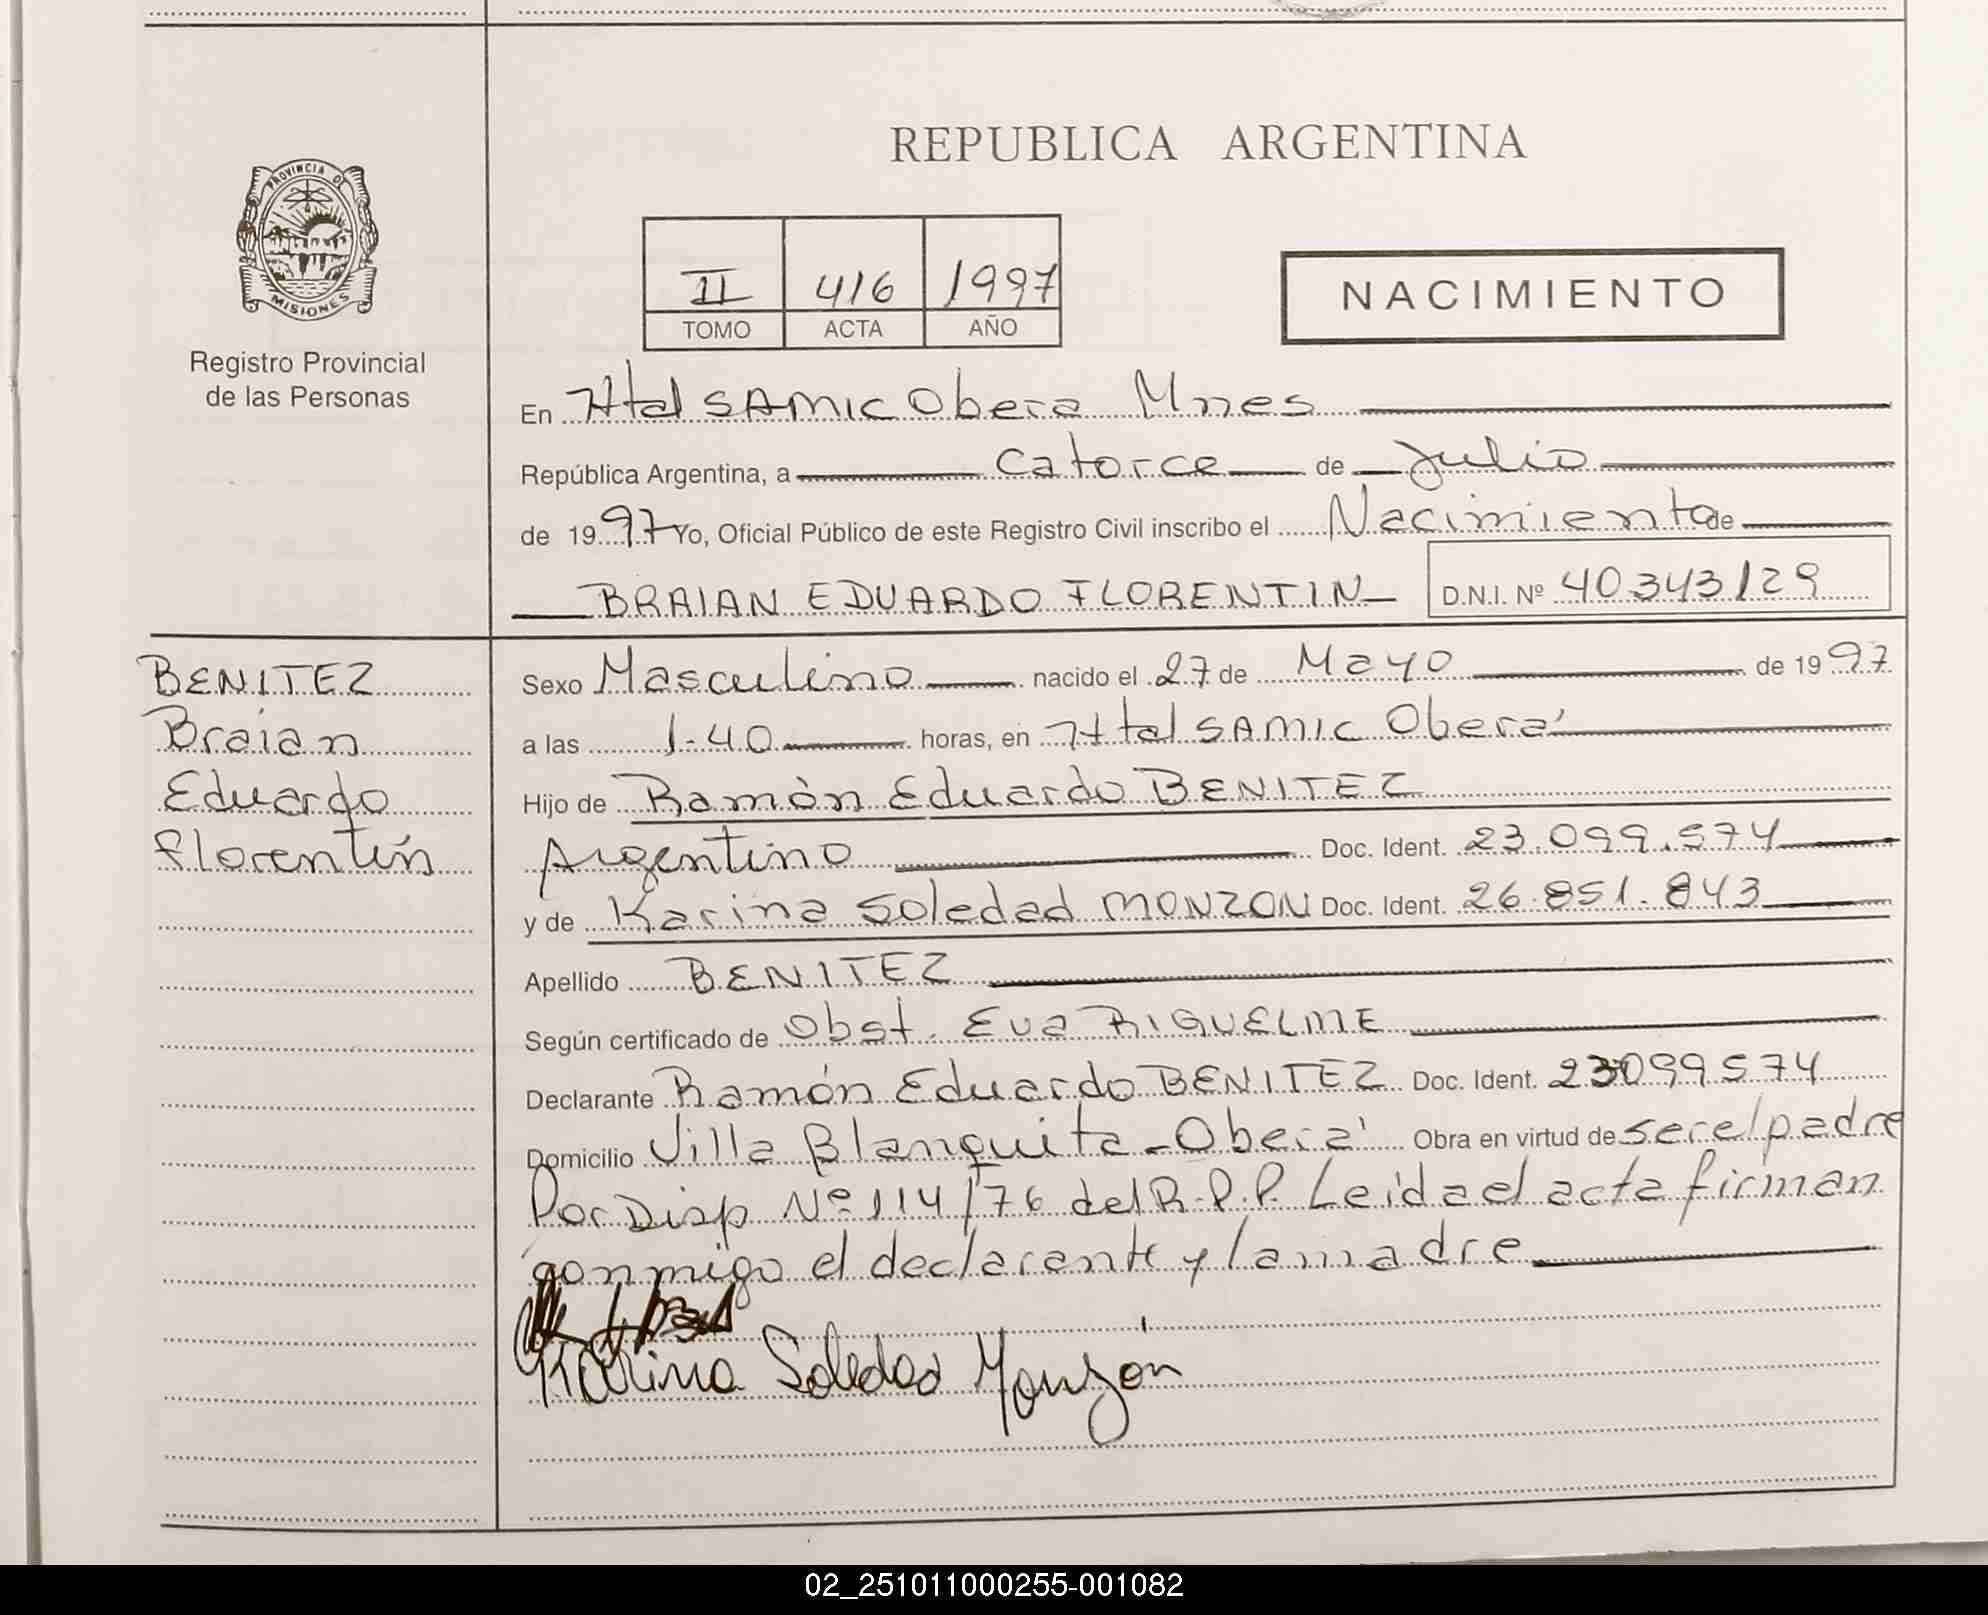 PROVINCIA DE
MISIONES
Registro Provincial
de las Personas
REPUBLICA ARGENTINA
II 416 1997
TOMO ACTA AÑO
NACIMIENTO
En Htal SAMIC Obera Mnes
República Argentina, a catorce de Julio
de 1997 Yo, Oficial Público de este Registro Civil inscribo el Nacimiento de
BRAIAN EDUARDO FLORENTIN D.N.I. Nº 40343129
BENITEZ
Braian
Eduardo
Florentín
Sexo Masculino nacido el 27 de Mayo de 1997
a las 1-40 horas, en Htal SAMIC Oberá
Hijo de Ramón Eduardo BENITEZ
Argentino Doc. Ident. 23.099.574
y de Karina Soledad MONZON Doc. Ident. 26.851.843
Apellido BENITEZ
Según certificado de Obst. Eva RIQUELME
Declarante Ramón Eduardo BENITEZ Doc. Ident. 23099574
Domicilio Villa Blanquita - Oberá Obra en virtud de ser el padre
Por Disp Nº 114/76 del R.P.P. Leída el acta firman
conmigo el declarante y la madre
Karina Soledad Monzón
02_251011000255-001082